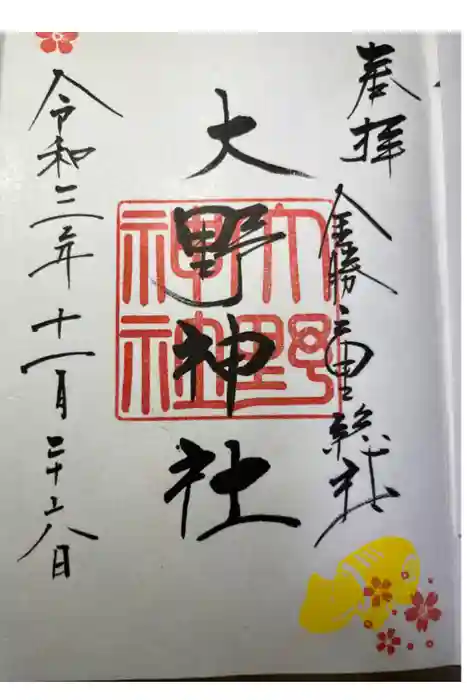 奉拝
金勝の里総社
大野神社
大野神社
令和三年十一月二十六日